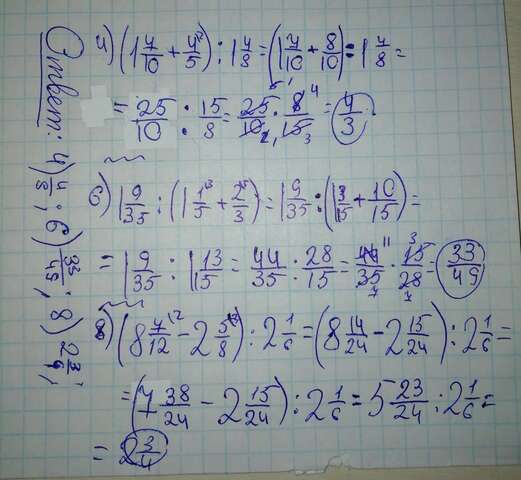 Ответ: 4) 4/3; 6) 33/49; 8) 2 3/4;
4) (1 7/10 + 4/5) : 1 7/8 = (1 7/10 + 8/10) : 1 7/8 =
= 25/10 : 15/8 = 25/10 · 8/15 = 4/3
6) 1 9/35 : (1 1/5 + 2/3) = 1 9/35 : (1 3/15 + 10/15) =
= 1 9/35 : 1 13/15 = 44/35 : 28/15 = 44/35 · 15/28 = 33/49
8) (8 7/12 - 2 5/8) : 2 1/6 = (8 14/24 - 2 15/24) : 2 1/6 =
= (7 38/24 - 2 15/24) : 2 1/6 = 5 23/24 : 2 1/6 =
= 2 3/4